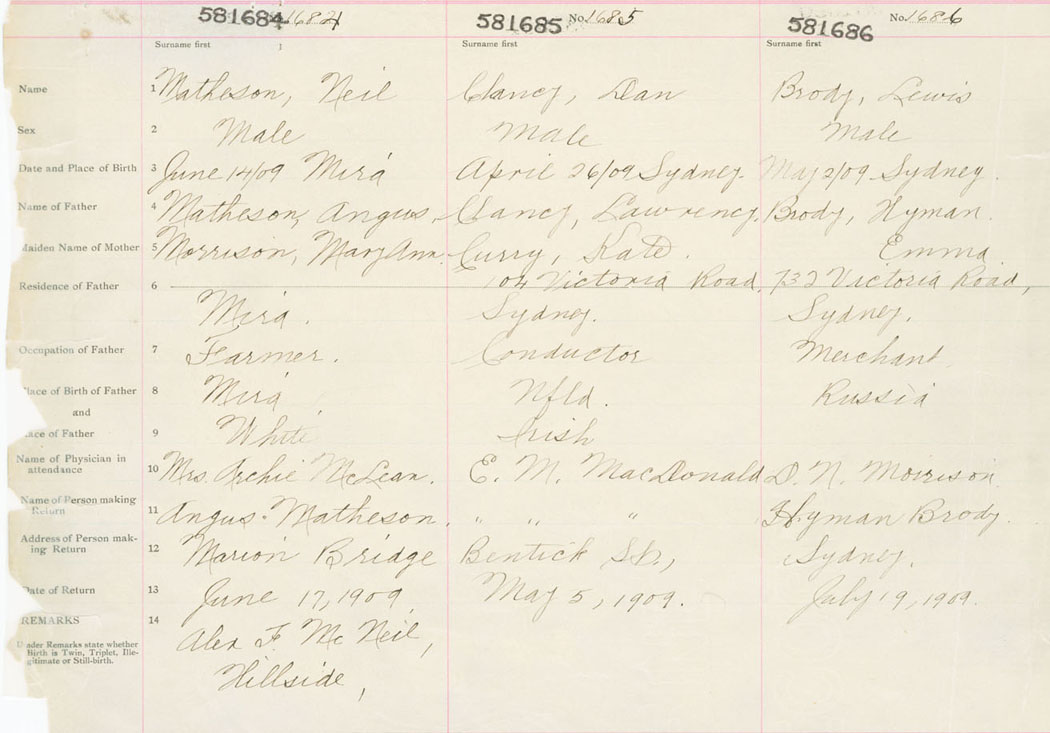 581684 1684 581685 No. 1685 581686 No. 1686
Surname first Surname first Surname first
Name 1 Matheson, Neil Clancy, Dan Brody, Lewis
Sex 2 Male Male Male
Date and Place of Birth 3 June 14/09 Mira April 26/09 Sydney. May 2/09 Sydney.
Name of Father 4 Matheson, Angus. Clancy, Lawrency. Brody, Hyman.
Maiden Name of Mother 5 Morrison, Mary Ann. Curry, Kate. Emma
104 Victoria Road, 732 Victoria Road,
Residence of Father 6 Mira. Sydney. Sydney.
Occupation of Father 7 Farmer. Conductor Merchant
lace of Birth of Father 8 Mira Nfld. Russia
and
ace of Father 9 White Irish
Name of Physician in
attendance 10 Mrs. Archie McLean. E. M. MacDonald D. N. Morrison
Name of Person making
Return 11 Angus Matheson. " " " Hyman Brody.
Address of Person mak-
ing Return 12 Marion Bridge Bentick St., Sydney.
Date of Return 13 June 17, 1909 May 5, 1909. July 19, 1909.
REMARKS 14 Alex F. McNeil,
Under Remarks state whether
Birth is Twin, Triplet, Ille-
gitimate or Still-birth.
Hillside,